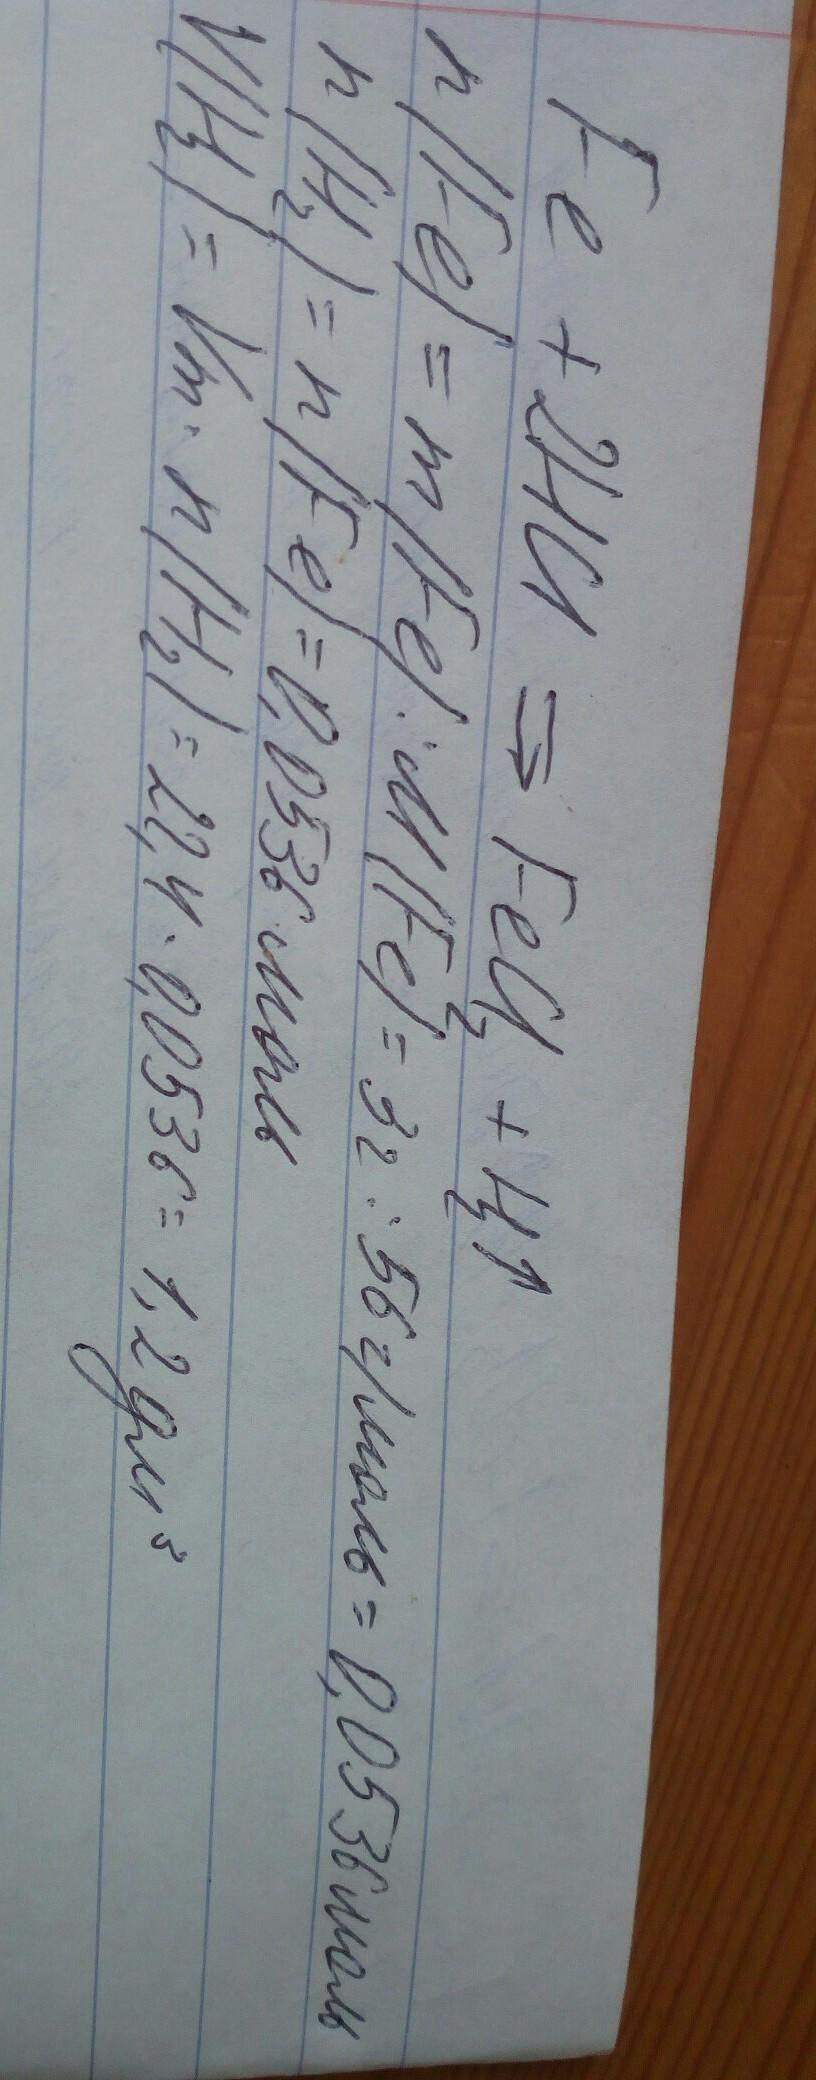 Fe + 2HCl ⇒ FeCl₂ + H₂↑
n(Fe) = m(Fe) : M(Fe) = 3г : 56 г/моль = 0,0536 моль
n(H₂) = n(Fe) = 0,0536 моль
V(H₂) = Vm · n(H₂) = 22,4 · 0,0536 = 1,2 дм³